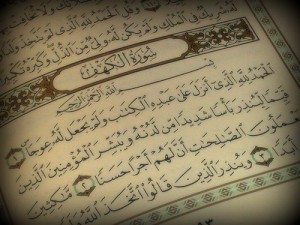 الْحَمْدُ لِلَّهِ الَّذِي لَمْ يَتَّخِذْ وَلَدًا
شَرِيكٌ فِي الْمُلْكِ وَلَمْ يَكُن لَّهُ وَلِيٌّ مِّنَ الذُّلِّ وَكَبِّرْهُ
سُورَةُ الْكَهْفِ
بِسْمِ اللَّهِ الرَّحْمَٰنِ الرَّحِيمِ
الْحَمْدُ لِلَّهِ الَّذِي أَنزَلَ عَلَىٰ عَبْدِهِ الْكِتَٰبَ وَلَمْ يَجْعَل لَّهُ عِوَجًا ١
قَيِّمًا لِّيُنذِرَ بَأْسًا شَدِيدًا مِّن لَّدُنْهُ وَيُبَشِّرَ الْمُؤْمِنِينَ الَّذِينَ
يَعْمَلُونَ الصَّٰلِحَٰتِ أَنَّ لَهُمْ أَجْرًا حَسَنًا ٢ مَّٰكِثِينَ
أَبَدًا ٣ وَيُنذِرَ الَّذِينَ قَالُوا اتَّخَذَ اللَّهُ